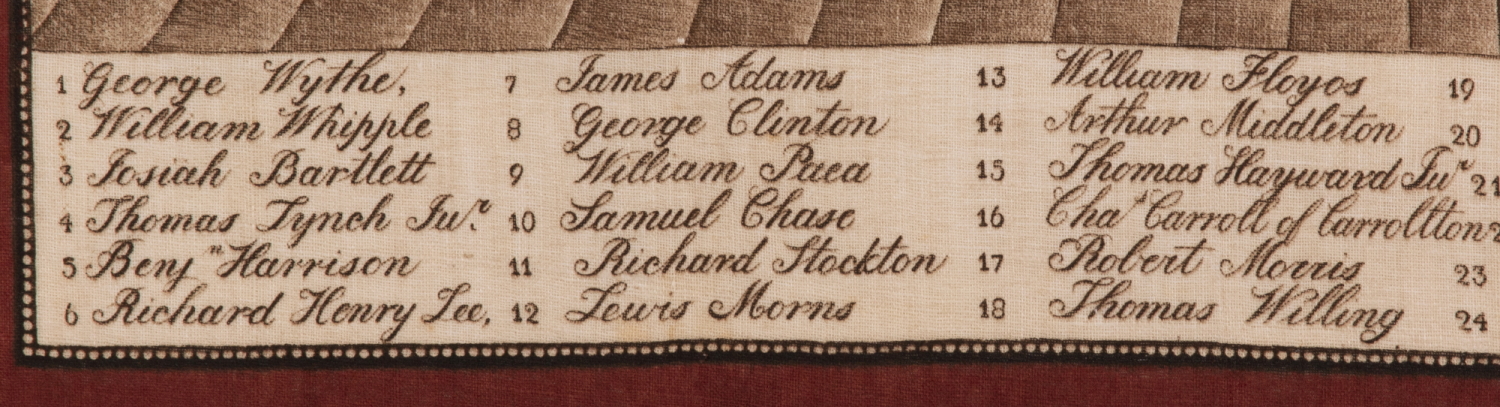 1 George Wythe, 7 James Adams 13 William Floyos 19
2 William Whipple 8 George Clinton 14 Arthur Middleton 20
3 Josiah Bartlett 9 William Paca 15 Thomas Hayward Ju.r 21
4 Thomas Lynch Ju.r 10 Samuel Chase 16 Cha.s Carroll of Carrollton 2
5 Benj.n Harrison 11 Richard Stockton 17 Robert Morris 23
6 Richard Henry Lee, 12 Lewis Morns 18 Thomas Willing 24